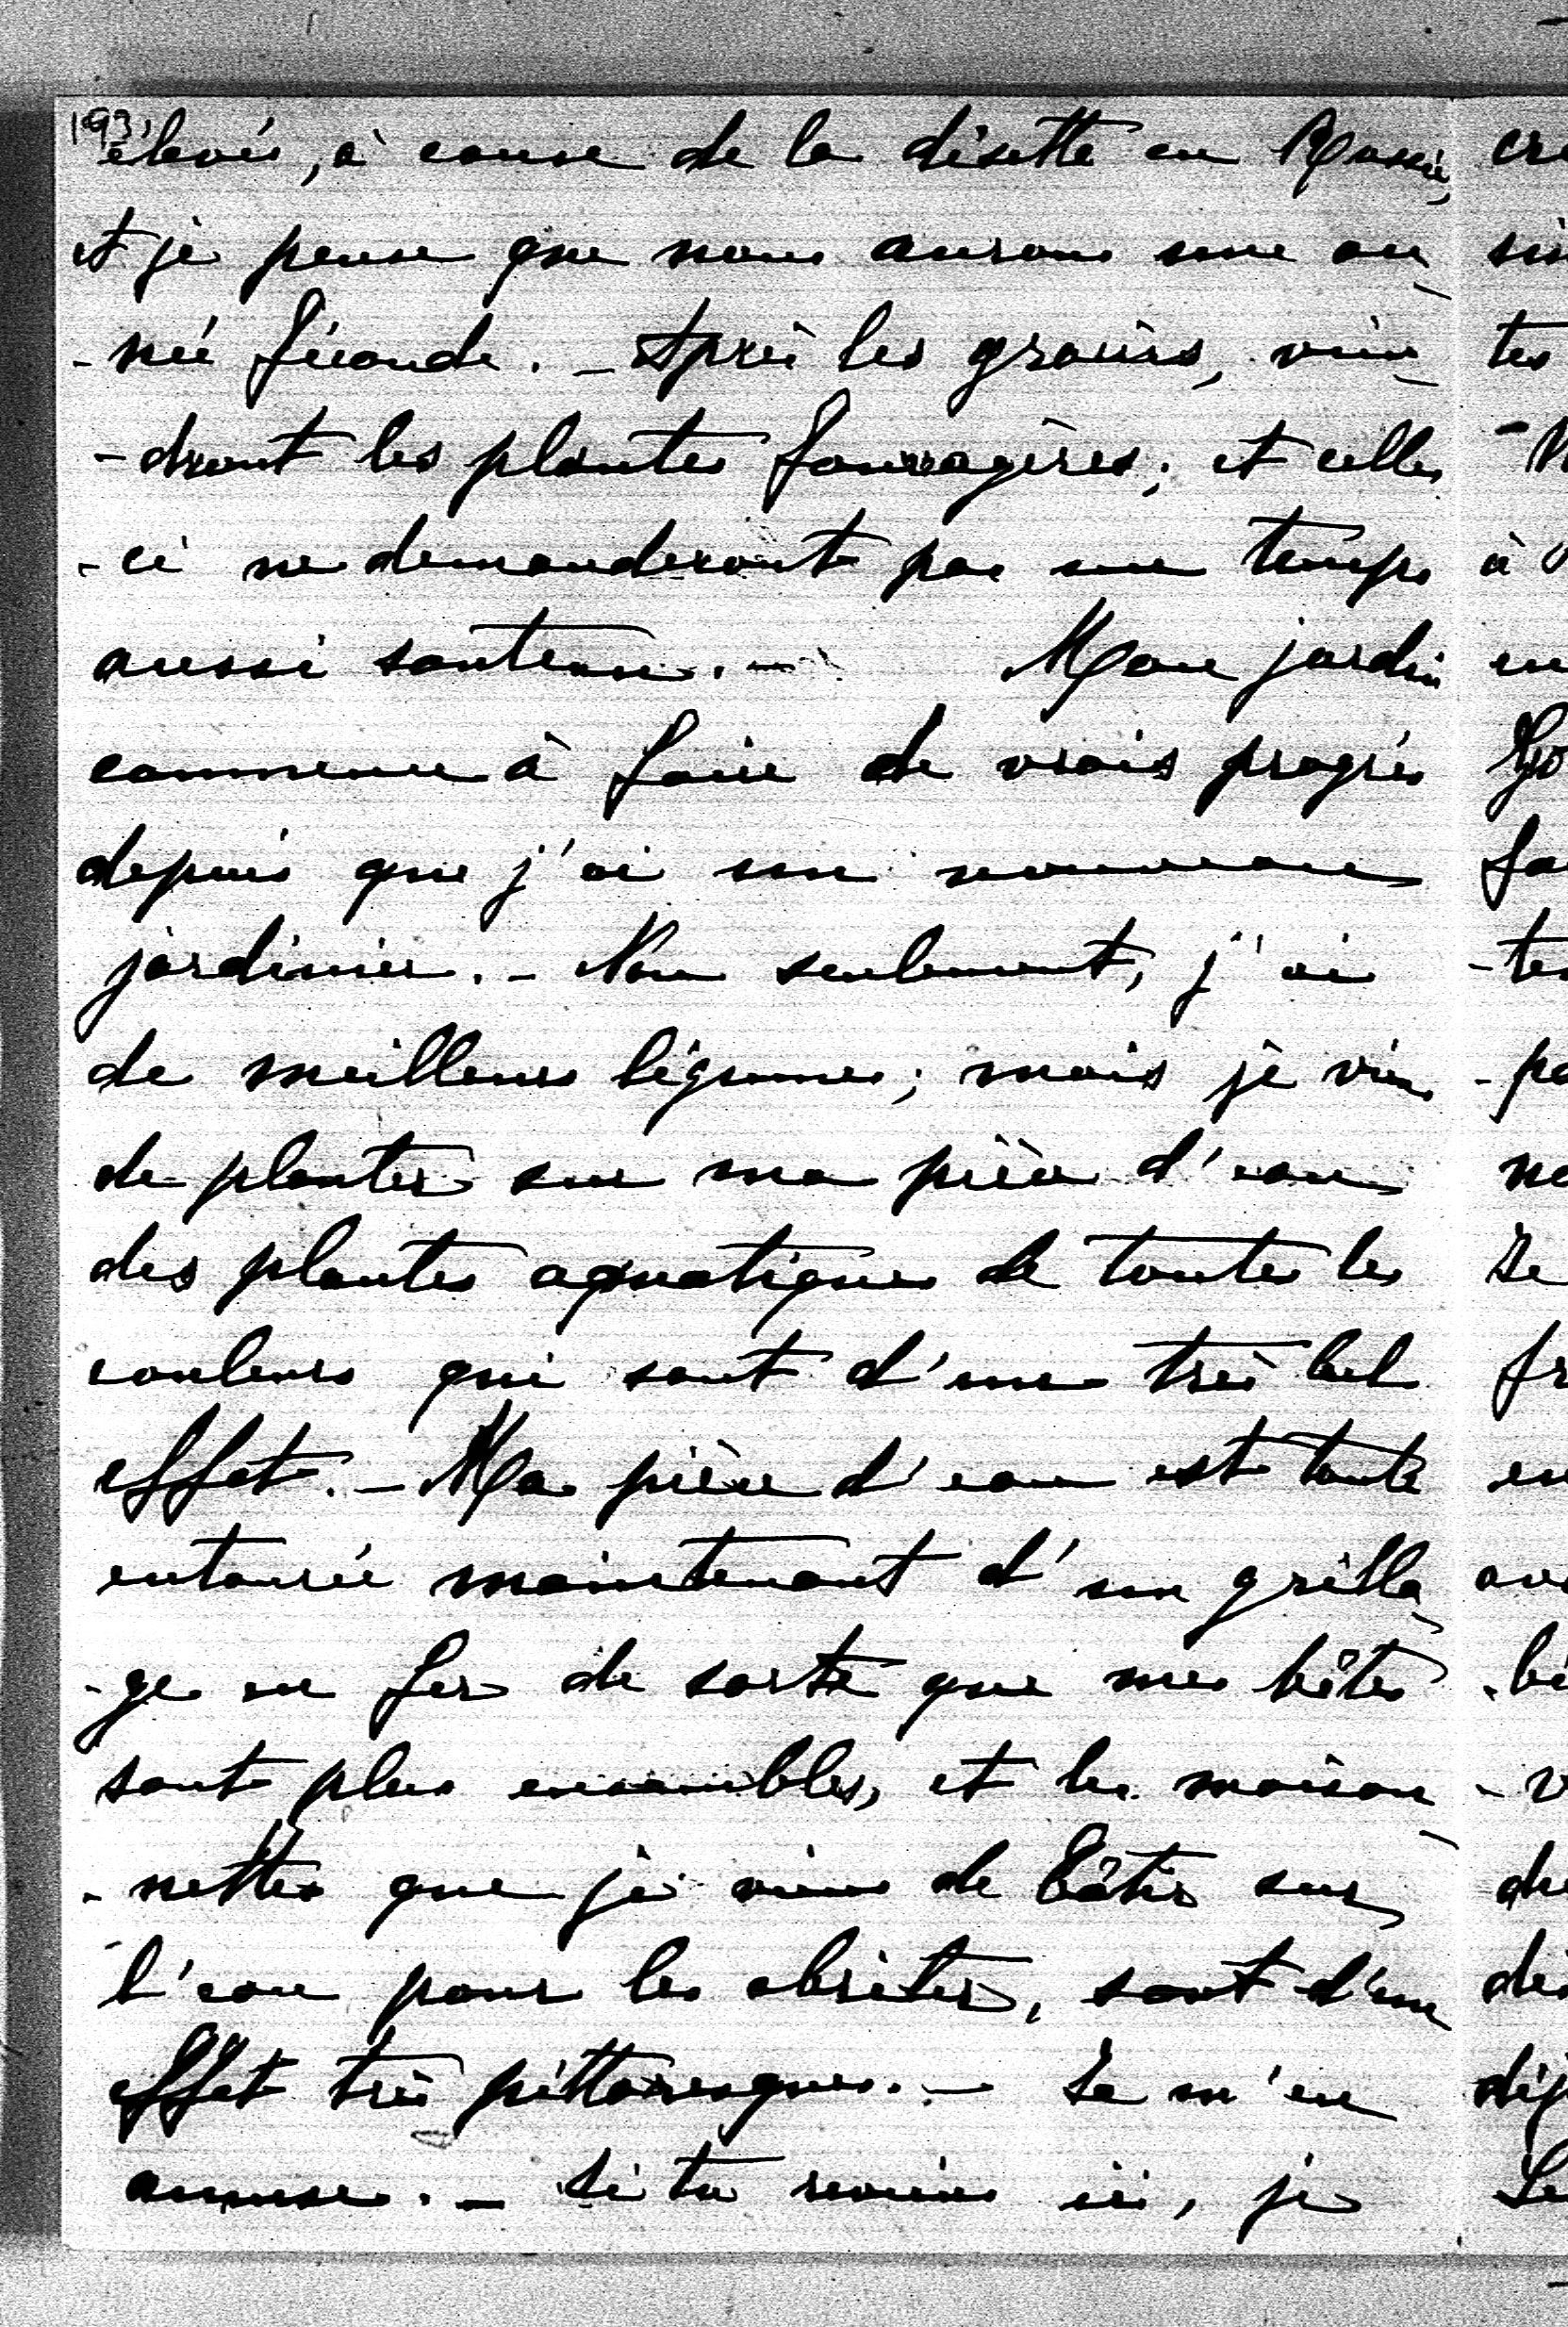 193
élevés, à cause de la disette en Russie,
et je pense que nous aurons une an
-née féconde. - Après les grains, vien
-dront les plantes fourragères; et celles
-ci ne demanderont pas un temps
aussi soutenu. - Mon jardin
commence à faire de vrais progrès
depuis que j'ai un nouveau
jardinier. - Non seulement, j'ai
de meilleurs légumes; mais je viens
de planter sur ma pièce d'eau
des plantes aquatiques de toutes les
couleurs qui sont d'un très bel
effet. - Ma pièce d'eau est toute
entourée maintenant d'un grilla
-ge en fer de sorte que mes bêtes
sont plus ensembles, et les maison
-nettes que je viens de bâtir sur
l'eau pour les abriter, sont d'un
effet très pittoresques. - Je m'en
amuse. - Si tu reviens ici, je